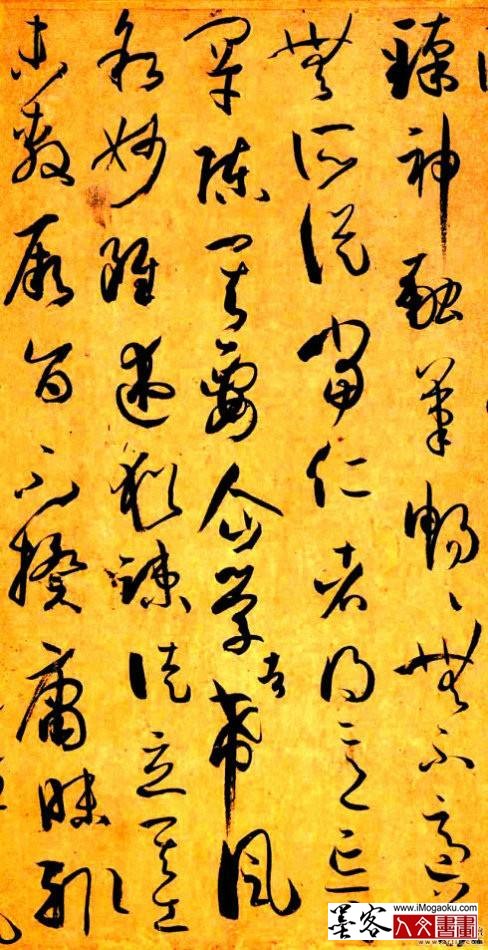 臻神融筆暢〻無不適蒙
無所從當仁者得意忘
罕陳其要企學者希風
敘妙雖述猶疎徒立其工
未敷厥旨不揆庸昧輒
www.iMogaoku.com
墨客人文書畫